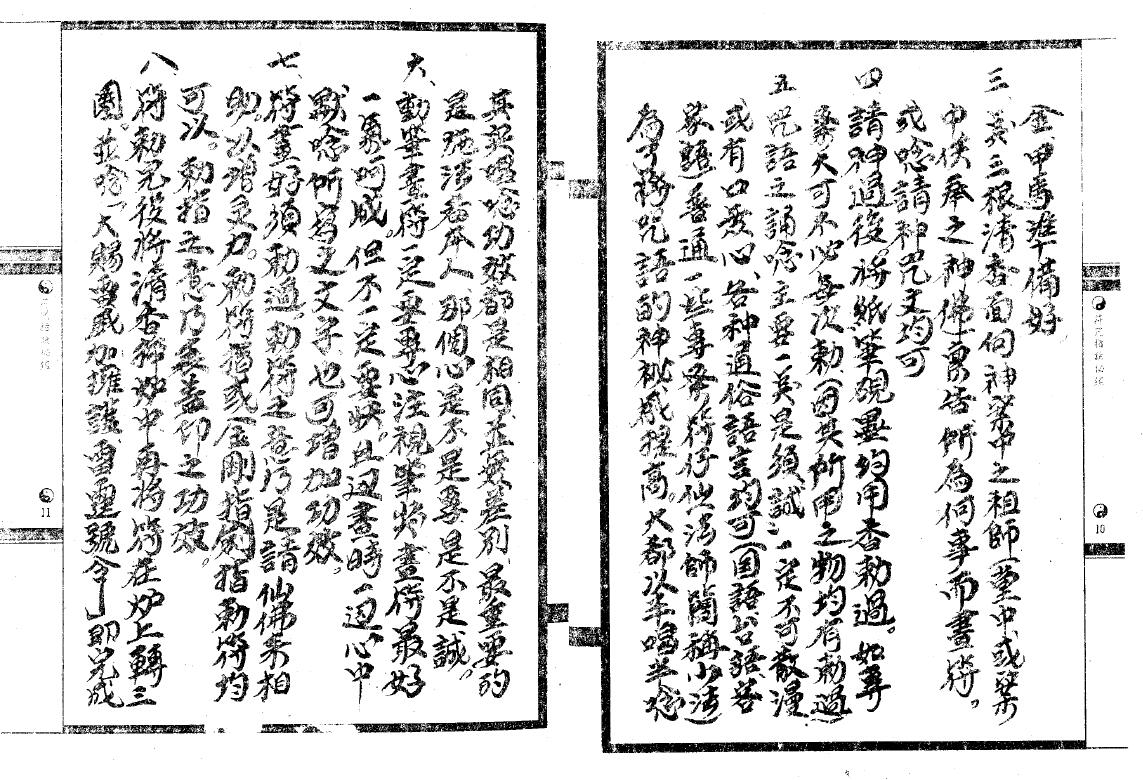 金、甲馬準備好。
三、其三根清香面向神案中之祖師(堂中或案
中供奉之神佛)稟告所為何事而畫符。
或唸請神咒文均可
四、請神過後將紙筆硯墨均用香勅過。如尋
案大可不必每次勅(因其所用之物均有勅過)
五、咒語之誦唸主要一矣是須誠、一定不可散漫
或有口無心、告神通俗語言均可(國語、台語、客
家語普通一些專爲符仔仙法師簡稱小法)
為了將咒語的神秘感提高大都以半唱半唸
其起唱唸功效都是相同並無差別、最重要的
是施法者本人、那個心是不是要是不是誠。
六、動筆畫符一定要專心注視筆尖畫符最好
一氣呵成。但不一定要快。且边畫時一边心中
默唸所寫之文字、也可增加功效。
七、符畫好須勅過、勅符之意乃是請仙佛來相
助、以增靈力。勅時指或(金剛指)劍指勅符均
可以。勅指之意乃表蓋印之功效。
八、符勅完後將清香插妒中再將符在炉上轉三
圈。並唸「大賜雷威加擁護、雷霆號令」即完成
10
11